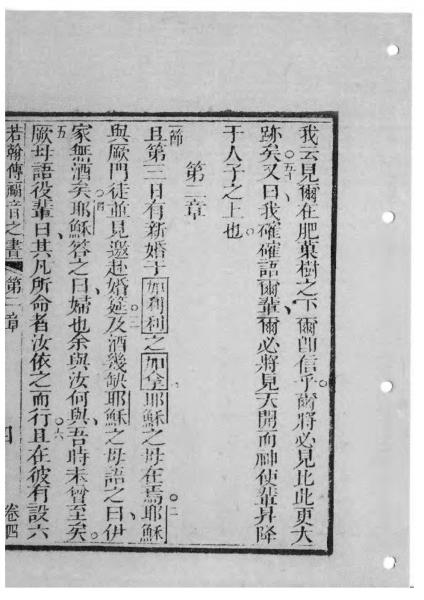 我云見爾在肥菓樹之下爾即信乎爾將必見比此更大
跡矣五十又曰我確確語爾輩爾必將見天開而神使輩昇降
于人子之上也
第二章
一節且第三日有新婚于加利利之加拿耶穌之母在焉二耶穌
與厥門徒並見邀赴婚筵三及酒幾缺耶穌之母語之曰伊
家無酒矣四耶穌答之曰婦也余與汝何與吾時未曾至矣
五厥母語役輩曰其凡所命者汝依之而行六且在彼有設六
若翰傳福音之書 第二章 四 卷四